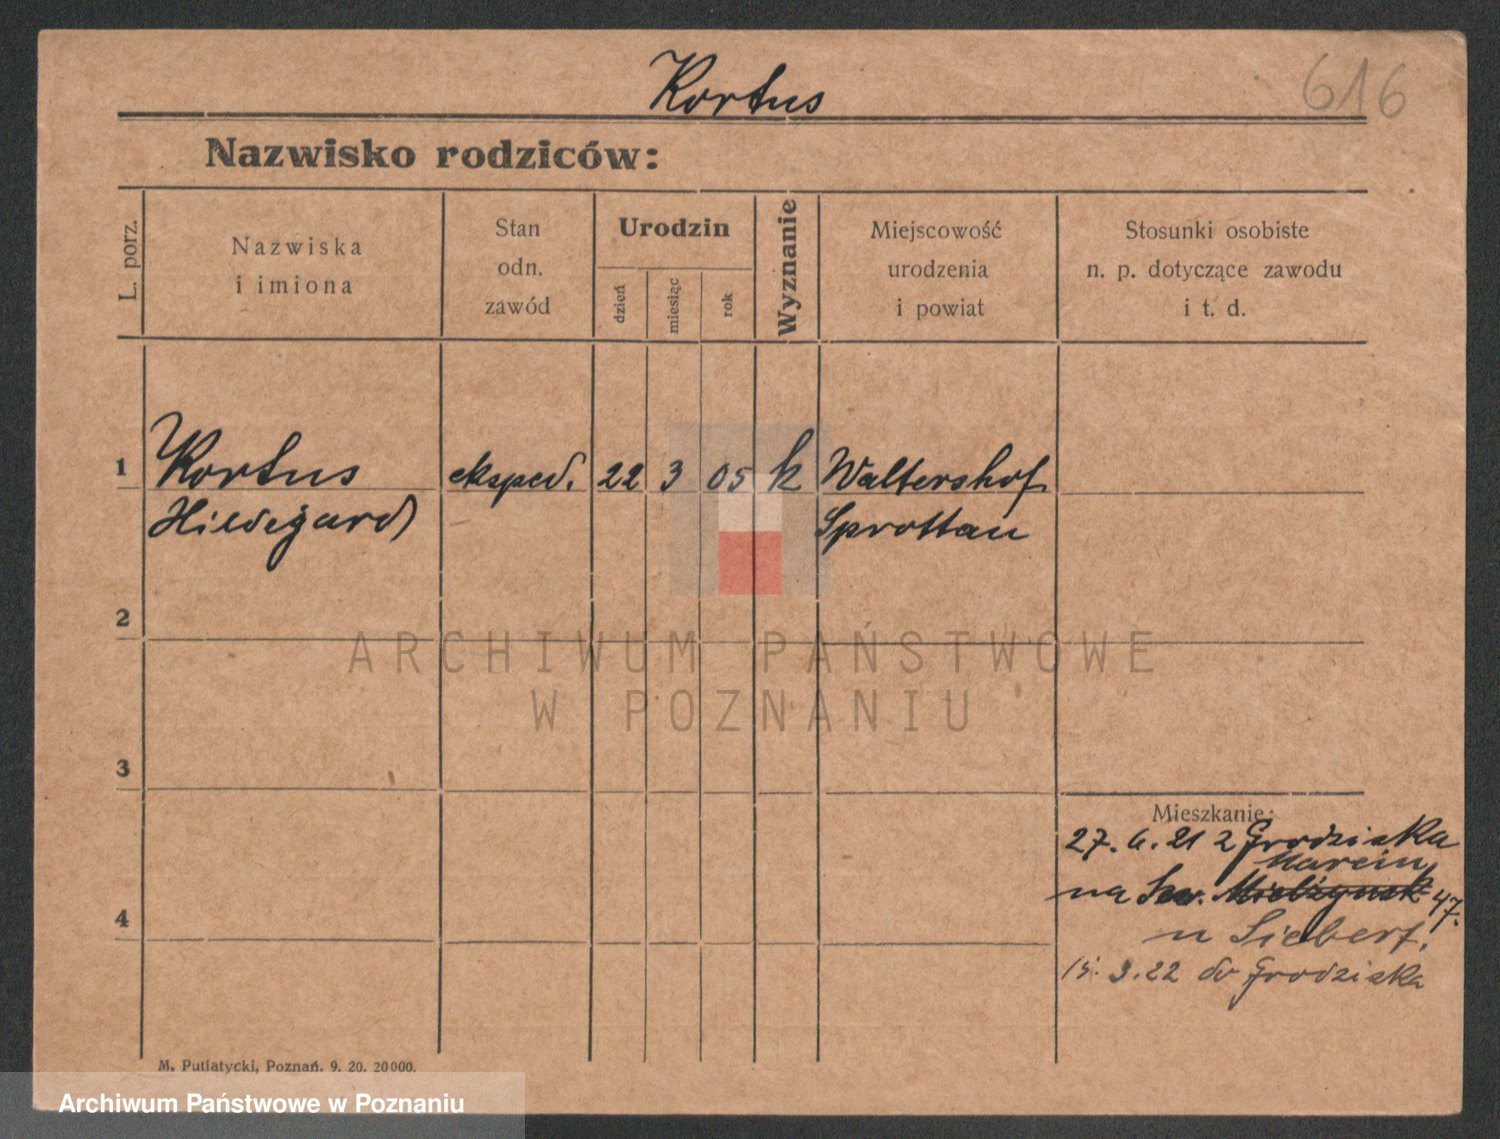 Kortus
616
Nazwisko rodziców:
L. porz.
Nazwiska
i imiona
Stan
odn.
zawód
Urodzin
dzień
miesiąc
rok
Wyznanie
Miejscowość
urodzenia
i powiat
Stosunki osobiste
n. p. dotyczące zawodu
i t. d.
1 Kortus eksped. 22 3 05 k Waltershof
Hildegard Sprottau
2
ARCHIWUM PAŃSTWOWE
W POZNANIU
3
Mieszkanie:
27. 6. 21 z Grodziska
Marcin
na Św. Mielżyńsk 47.
4
u Siebert.
15. 3. 22 do Grodziska
M. Putiatycki, Poznań. 9. 20. 20000.
Archiwum Państwowe w Poznaniu